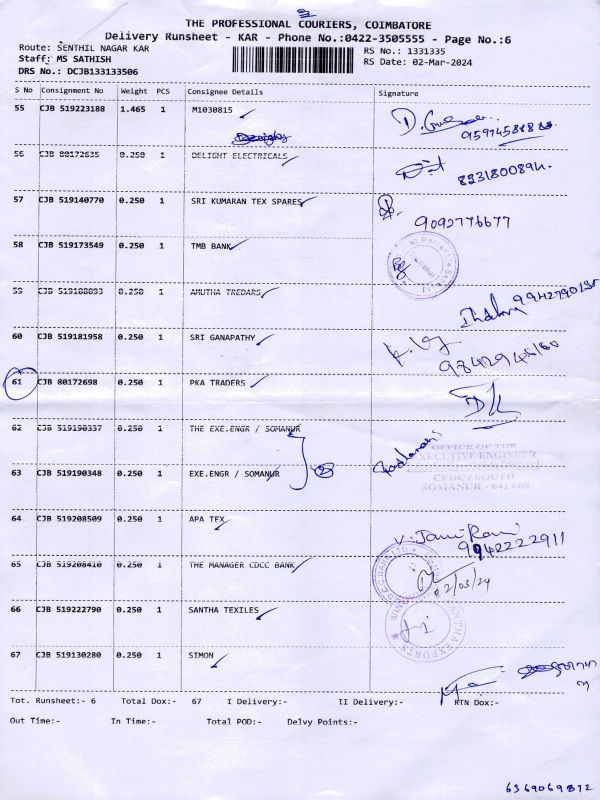 THE PROFESSIONAL COURIERS, COIMBATORE
Delivery Runsheet - KAR - Phone No.:0422-3505555 - Page No.:6
Route: SENTHIL NAGAR KAR
RS No.: 1331335
Staff: MS SATHISH
RS Date: 02-Mar-2024
DRS No.: DCJB133133506
S No Consignment No Weight PCS Consignee Details Signature
55 CJB 519223188 1.465 1 M1030815
56 CJB 80172635 0.250 1 DELIGHT ELECTRICALS
57 CJB 519140770 0.250 1 SRI KUMARAN TEX SPARES
9092776677
58 CJB 519173549 0.250 1 TMB BANK
59 CJB 519188893 0.250 1 AMUTHA TREDARS
60 CJB 519181958 0.250 1 SRI GANAPATHY
61 CJB 80172698 0.250 1 PKA TRADERS
62 CJB 519190337 0.250 1 THE EXE.ENGR / SOMANUR
OFFICE OF THE
EXECUTIVE ENGINEER
CEDC / SOUTH
SOMANUR - 641 668
63 CJB 519190348 0.250 1 EXE.ENGR / SOMANUR
64 CJB 519208509 0.250 1 APA TEX
V. Jansi Rani
9942222911
65 CJB 519208410 0.250 1 THE MANAGER CDCC BANK
2/03/24
66 CJB 519222790 0.250 1 SANTHA TEXILES
SANTHA EXPORTS
67 CJB 519130280 0.250 1 SIMON
Tot. Runsheet:- 6 Total Dox:- 67 I Delivery:- II Delivery:- RTN Dox:-
Out Time:- In Time:- Total POD:- Delvy Points:-
6369069872